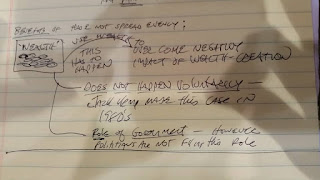 BENEFITS OF NOT SPREAD EVENLY;
"WEALTH"
USE WEALTH TO
THIS HAS TO HAPPEN
OVERCOME NEGATIVE
IMPACT OF WEALTH-CREATION
DOES NOT HAPPEN VOLUNTARILY —
made this case in
1980's
Role of Government — However
Politicians ARE NOT filling this Role